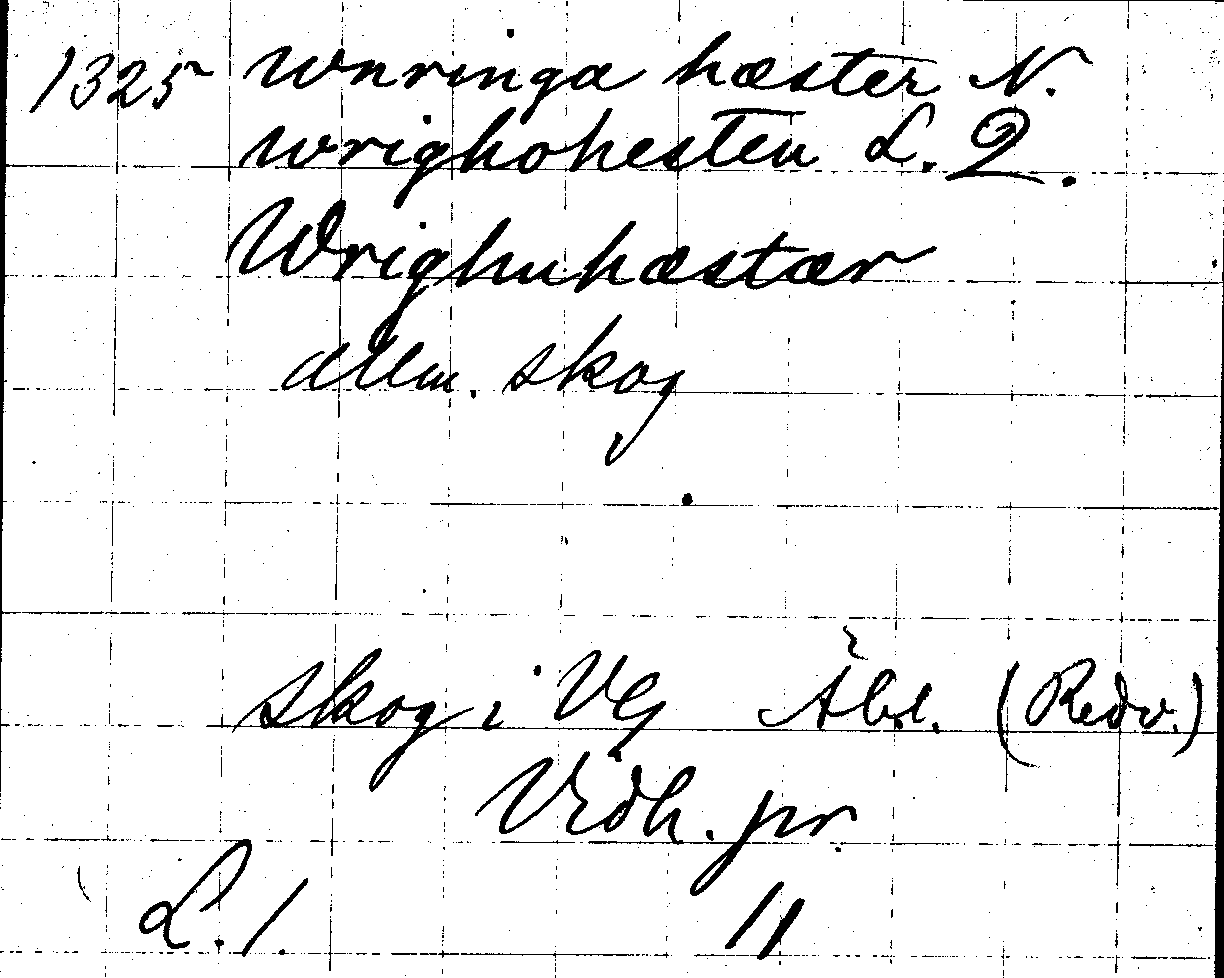 1325 wnringa hæster N.
wrighohesten L. 2.
Wrighuhæstær
allm. skog
skog i VG Äbd. (Redv.)
Vidh. pr.
L. 1. 11